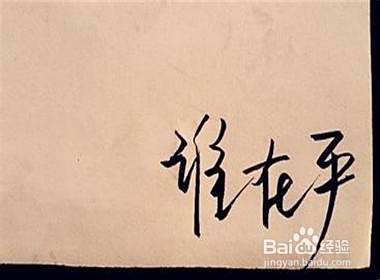 谁在乎
Baidu经验
jingyan.baidu.com